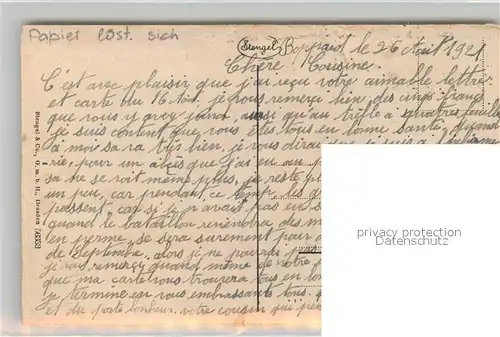 Papier löst. sich
Stengel Boppard le 26 Août 1921
Chère Cousine.
C'est avec plaisir que j'ai reçu votre aimable lettre
et carte du 16 je vous remerci bien, des cinq francs
que vous y avez joint, aussi qu'au trèfle à quatres feuilles
je suis content que vous êtes tous en bonne santé, quand
à moi sa va très bien, je vous dirai que je suis à
rie, pour un abçès que j'ai eu au
sa ne se voit même plus, je reste
un peu, car pendant ce temp, les
passent, car si j'en avait pas eu
quand le bataillon reviendra des
en perme, se sera surement pour
de Septembre, alors je ne pourrai
je vous remerci quand même de votre
que ma carte vous trouvera tous en
je termine en vous embrassants tous.
et du porte bonheur. votre cousin qui
Stengel & Co., G. m. b. H., Dresden
privacy protection
www.ansichtskarten-lexikon.de